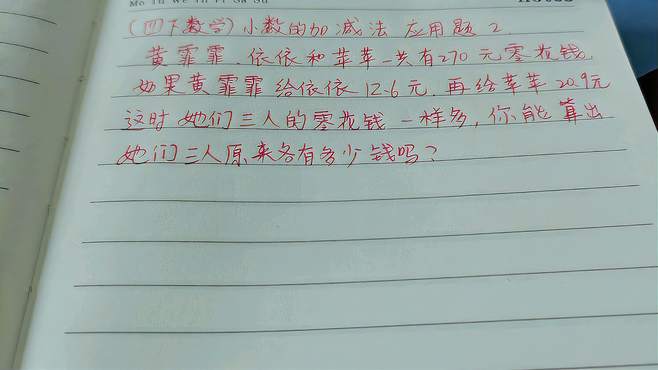 Mo Tu We Th Fr Sa Su
(四下数学)小数的加减法 应用题2.
黄霏霏、依依和苹苹一共有270元零花钱.
如果黄霏霏给依依12.6元.再给苹苹20.9元
这时她们三人的零花钱一样多,你能算出
她们三人原来各有多少钱吗?